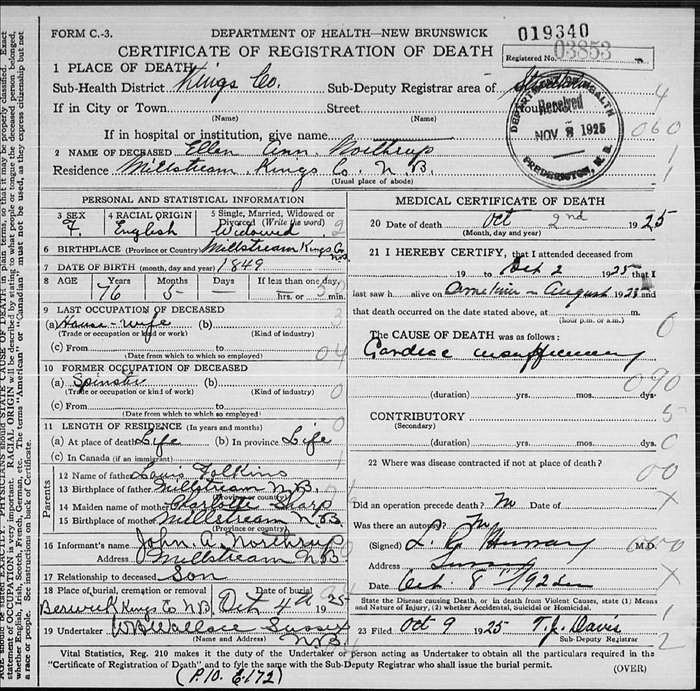 FORM C.-3.
DEPARTMENT OF HEALTH—NEW BRUNSWICK
019340
CERTIFICATE OF REGISTRATION OF DEATH
Registered No. 03853
1 PLACE OF DEATH
Sub-Health District Kings Co. Sub-Deputy Registrar area of
If in City or Town Street
(Name) (Name)
If in hospital or institution, give name
DEPARTMENT OF HEALTH
Received
NOV 8 1925
FREDERICTON, N. B.
4
060
1
1
2 NAME OF DECEASED Ellen Ann Northrup
Residence Millstream Kings Co. N.B.
(Usual place of abode)
PERSONAL AND STATISTICAL INFORMATION
3 SEX 4 RACIAL ORIGIN 5 Single, Married, Widowed or Divorced (Write the word)
F. English Widowed
6 BIRTHPLACE (Province or Country) Millstream Kings Co NB
7 DATE OF BIRTH (month, day and year) 1849
8 AGE Years Months Days If less than one day
76 5 — hrs. or min.
9 LAST OCCUPATION OF DECEASED
(a) House-wife (b)
(Trade or occupation or kind of work) (Kind of industry)
(c) From to
(Date from which to which so employed)
10 FORMER OCCUPATION OF DECEASED
(a) (b)
(Trade or occupation or kind of work) (Kind of industry)
(c) From to
(Date from which to which so employed)
11 LENGTH OF RESIDENCE (In years and months)
(a) At place of death Life (b) In province Life
(c) In Canada (if an immigrant)
Parents
12 Name of father Louis Folkins
13 Birthplace of father Millstream N.B.
(Province or country)
14 Maiden name of mother Charlotte Sharp
15 Birthplace of mother Millstream N.B.
(Province or country)
16 Informant's name John A. Northrup
Address Millstream NB
17 Relationship to deceased Son
18 Place of burial, cremation or removal Date of burial
Berwick Kings Co NB Oct 4th 1925
19 Undertaker W.B. Wallace Sussex N.B.
(Name and Address)
MEDICAL CERTIFICATE OF DEATH
20 Date of death Oct 2nd 1925
(Month, day and year)
21 I HEREBY CERTIFY, that I attended deceased from
19 to Oct 2 1925 that I
last saw h alive on August 19
that death occurred on the date stated above, at m.
(hour p.m. or a.m.)
The CAUSE OF DEATH was as follows:
Cardiac insufficiency
090
(duration) yrs. mos. dys.
CONTRIBUTORY
(Secondary)
(duration) yrs. mos. dys.
22 Where was disease contracted if not at place of death?
Did an operation precede death? No Date of
Was there an autopsy? No
(Signed) M.D.
Address Sussex
Date Oct. 8 192
State the Disease causing Death, or in death from Violent Causes, state (1) Means and Nature of Injury, (2) whether Accidental, Suicidal or Homicidal.
23 Filed Oct 9 1925 T.J. Davis
Sub-Deputy Registrar
Vital Statistics, Reg. 210 makes it the duty of the Undertaker or person acting as Undertaker to obtain all the particulars required in the
"Certificate of Registration of Death" and to fyle the same with the Sub-Deputy Registrar who shall issue the burial permit.
(OVER)
(P.10. E172)